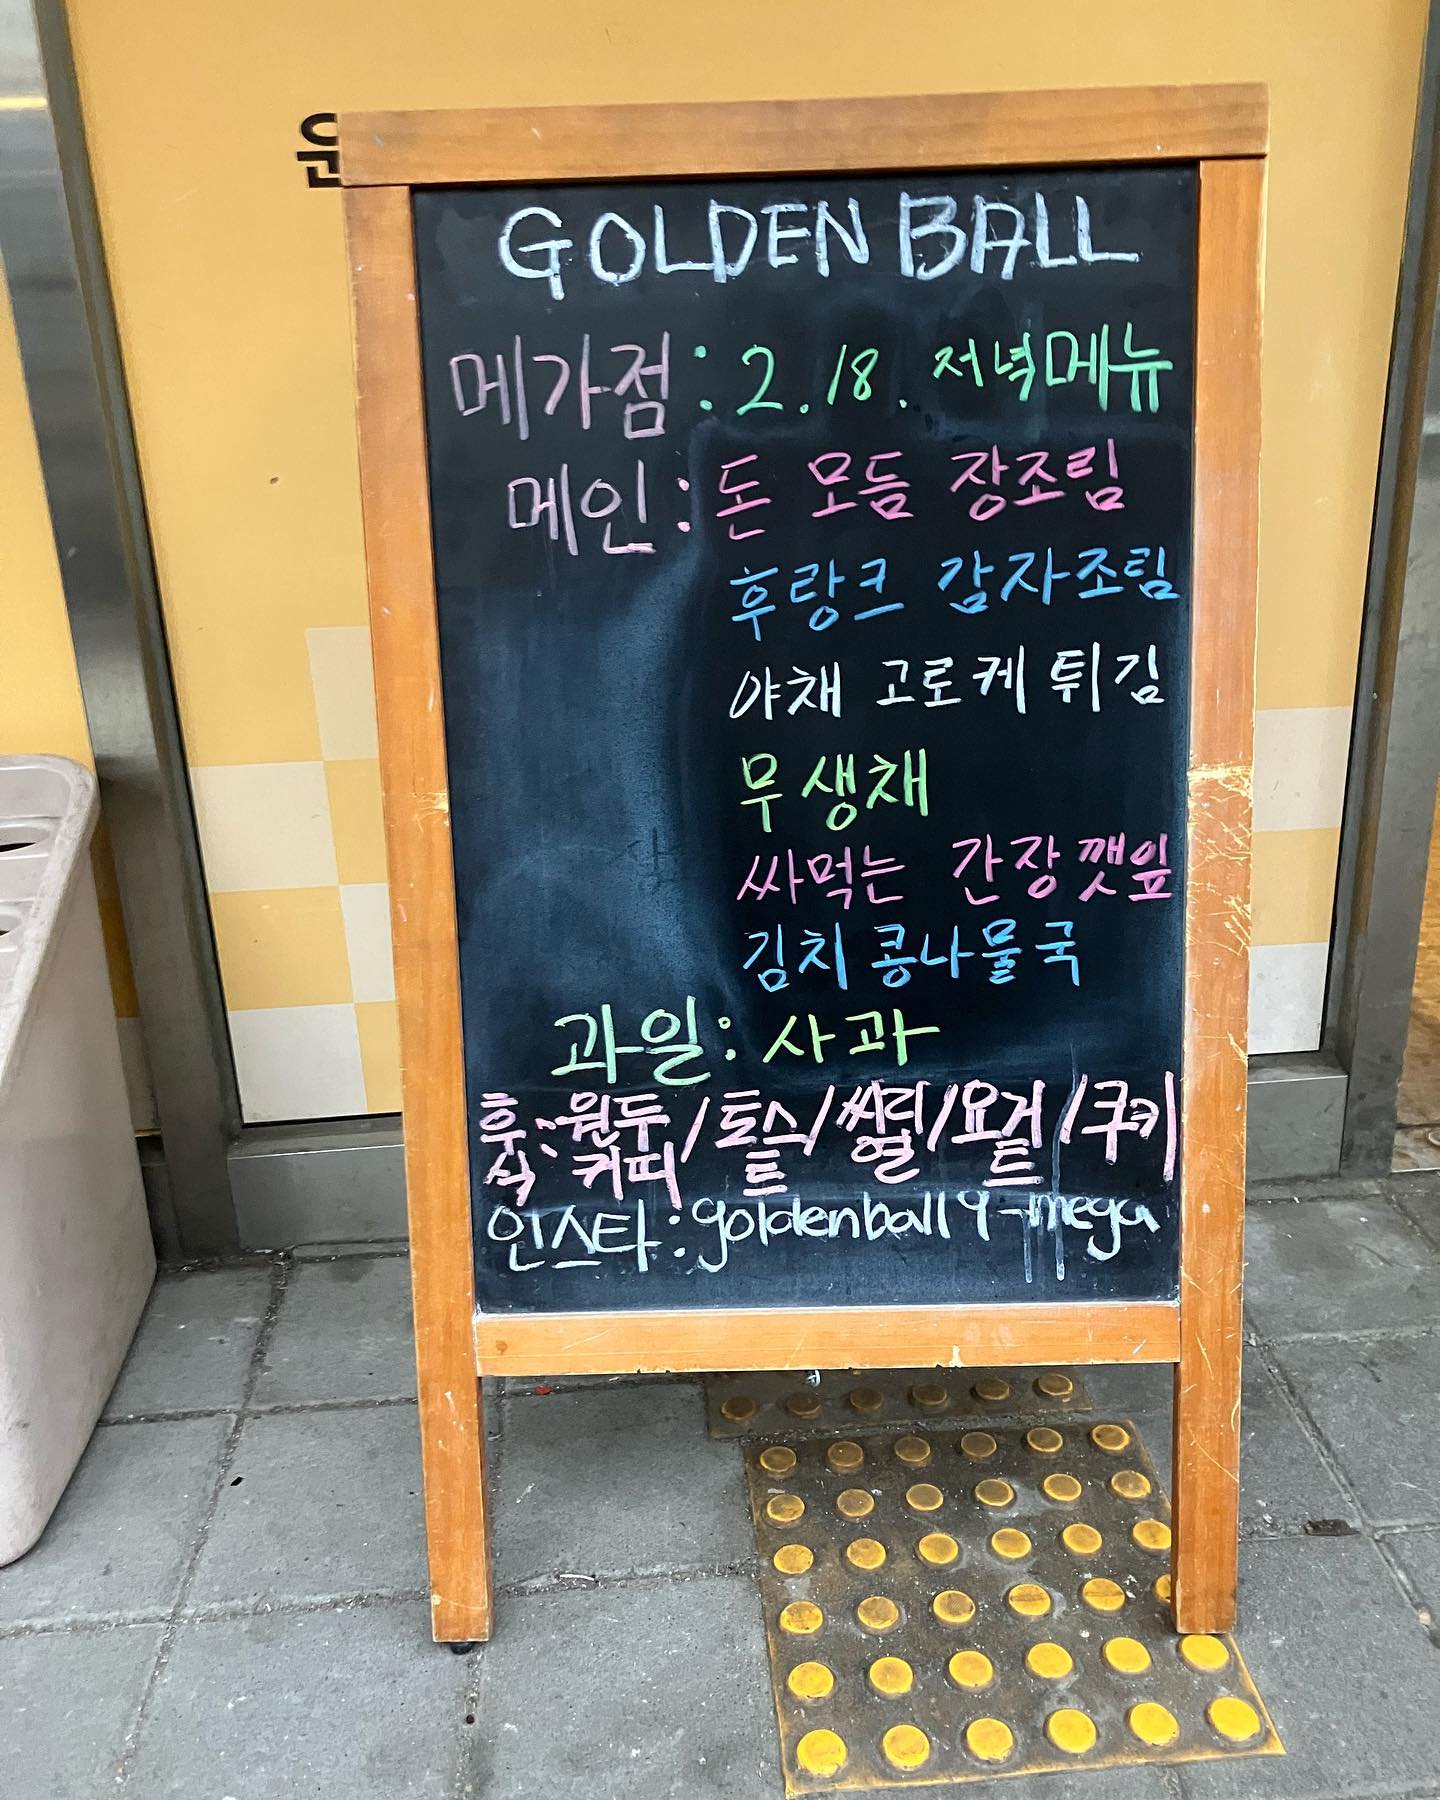 운
GOLDEN BALL
메가점 : 2.18. 저녁메뉴
메인 : 돈 모듬 장조림
후랑크 감자조림
야채 고로케 튀김
무생채
싸먹는 간장깻잎
김치콩나물국
과일 : 사과
후식 : 원두커피 / 토스트 / 씨리얼 / 요거트 / 쿠키
인스타 : goldenball9-mega